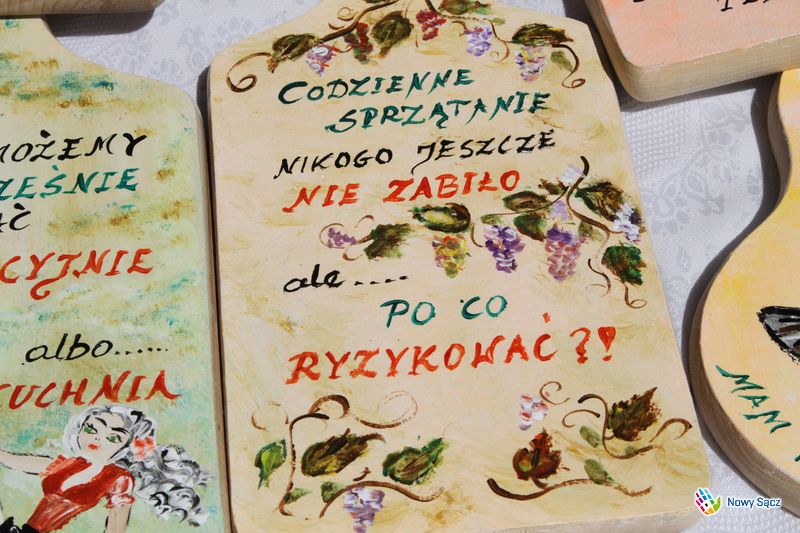 MOŻEMY
CYJNIE
albo......
KUCHNIA
CODZIENNE
SPRZĄTANIE
NIKOGO JESZCZE
NIE ZABIŁO
ale.....
PO CO
RYZYKOWAĆ?!
MAM
Nowy Sącz